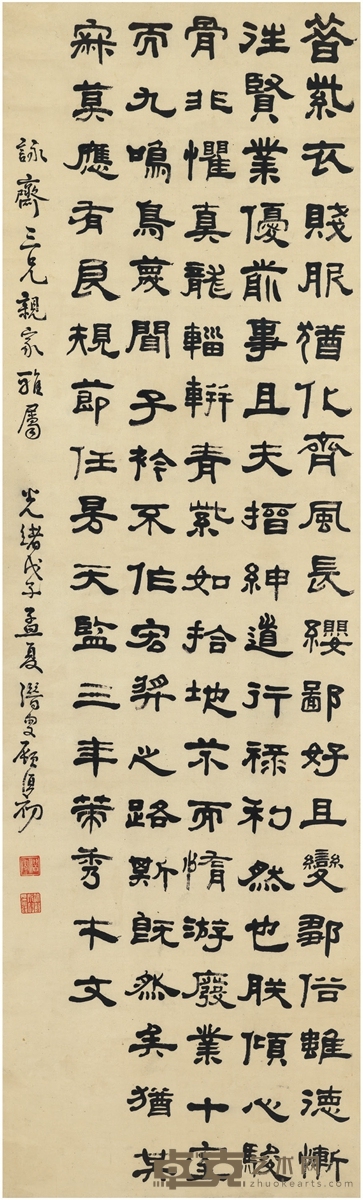 昔紫衣賤服猶化齊風長纓鄙好且變鄒俗雖德慚
往賢業優前事且夫搢紳道行祿利然也朕傾心駿
骨非懼真龍輜軿青紫如拾地芥而惰游廢業十室
而九鳴鳥蔑聞子衿不作宏奨之路斯既然矣猶其
寂莫應有良規節任昉天監三年策秀才文
詠齋三兄親家雅屬 光緒戊子孟夏潛叟顧復初
卓克艺术网
www.zhuokearts.com